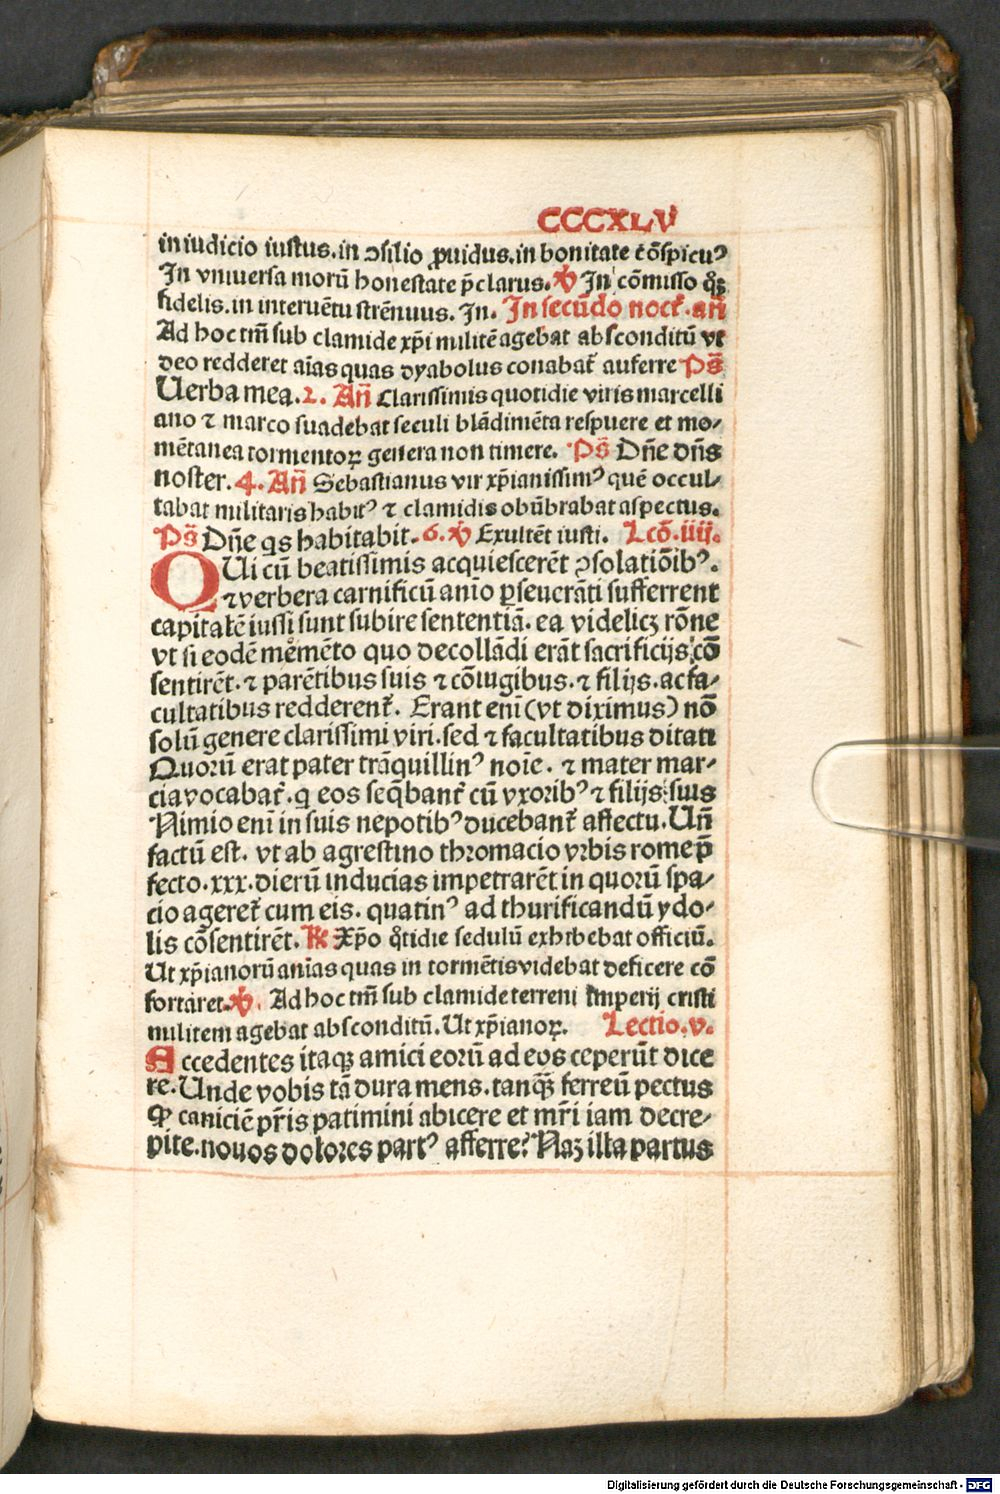 CCCXLV
in iudicio iustus. in ↄsilio ꝓuidus. in bonitate cōspicuꝰ
In vniuersa morū honestate p̄clarus. ℣ In cōmisso qͦꝫ
fidelis. in interuētu strēnuus. In. In secūdo noct̉. an̄
Ad hoc tm̄ sub clamide xp̄i militē agebat absconditū vt
deo redderet aīas quas dyabolus conabat̉ auferre Ps̄
Uerba mea. 2. An̄ Clarissimis quotidie viris marcelli
ano ⁊ marco suadebat seculi blādimēta respuere et mo⸗
mētanea tormentoꝝ genera non timere. Ps̄ Dn̄e dn̄s
noster. 4. An̄ Sebastianus vir xp̄ianissimꝰ quē occul⸗
tabat militaris habitꝰ ⁊ clamidis obūbrabat aspectus.
Ps̄ Dn̄e qs habitabit. 6. ℣ Exultēt iusti. Lcō. iiij.
QUi cū beatissimis acquiescerēt ↄsolatiōibꝰ.
⁊ verbera carnificū anīo ꝑseuerāti sufferrent
capitalē iussi sunt subire sententiā. ea videlicꝫ rōne
vt si eodē memēto quo decollādi erāt sacrificijs cō
sentirēt. ⁊ parētibus suis ⁊ cōiugibus. ⁊ filijs. ac fa⸗
cultatibus redderent̉. Erant enī (vt diximus) nō
solū genere clarissimi viri. sed ⁊ facultatibus ditati
Quorū erat pater trāquillinꝰ noīe. ⁊ mater mar⸗
cia vocabat̉. q eos seq̄bant̉ cū vxoribꝰ ⁊ filijs suis
Nimio enī in suis nepotibꝰ ducebant̉ affectu. Un̄
factū est. vt ab agrestino thromacio vrbis rome p̄
fecto. xxx. dierū inducias impetrarēt in quorū spa⸗
cio ageret̉ cum eis. quatinꝰ ad thurificandū ydo⸗
lis cōsentirēt. ℟ Xp̄o qͦtidie sedulū exhibebat officiū.
Ut xp̄ianorū anīas quas in tormētis videbat deficere cō
fortaret. ℣. Ad hoc tm̄ sub clamide terreni imperij cristi
militem agebat absconditū. Ut xp̄ianoꝝ. Lectio. v.
Accedentes itaqꝫ amici eorū ad eos ceperūt dice
re. Unde vobis tā dura mens. tanqꝫ̄ ferreū pectus
ꝙ caniciē pr̄is patimini abicere et mr̄i iam decre⸗
pite. nouos dolores partꝰ afferre? Naꝫ illa partus
Digitalisierung gefördert durch die Deutsche Forschungsgemeinschaft - DFG